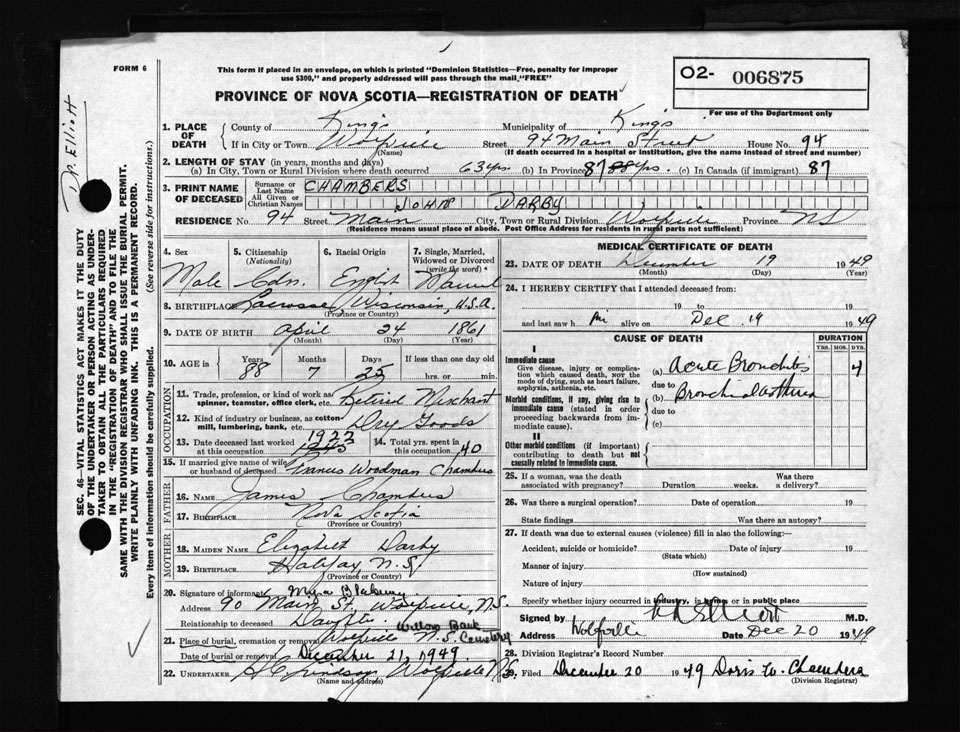 FORM 6
This form if placed in an envelope, on which is printed "Dominion Statistics—Free, penalty for improper
use $300," and properly addressed will pass through the mail "FREE"
O2- 006875
For use of the Department only
PROVINCE OF NOVA SCOTIA—REGISTRATION OF DEATH
Dr. Elliott
SEC. 46—VITAL STATISTICS ACT MAKES IT THE DUTY
OF THE UNDERTAKER OR PERSON ACTING AS UNDER-
TAKER TO OBTAIN ALL THE PARTICULARS REQUIRED
IN THE "REGISTRATION OF DEATH" AND TO FILE THE
SAME WITH THE DIVISION REGISTRAR WHO SHALL ISSUE THE BURIAL PERMIT.
WRITE PLAINLY WITH UNFADING INK. THIS IS A PERMANENT RECORD.
Every item of information should be carefully supplied. (See reverse side for instructions.)
1. PLACE OF DEATH
County of Kings Municipality of Kings
If in City or Town Wolfville Street 94 Main Street House No. 94
(Name) (If death occurred in a hospital or institution, give the name instead of street and number)
2. LENGTH OF STAY (in years, months and days)
(a) In City, Town or Rural Division where death occurred 63 yrs. (b) In Province 87 88 yrs. (c) In Canada (if immigrant) 87
3. PRINT NAME OF DECEASED
Surname or Last Name CHAMBERS
All Given or Christian Names JOHN DARBY
RESIDENCE No. 94 Street Main City, Town or Rural Division Wolfville Province NS
(Residence means usual place of abode. Post Office Address for residents in rural parts not sufficient)
4. Sex 5. Citizenship (Nationality) 6. Racial Origin 7. Single, Married, Widowed or Divorced (write the word)
Male Cdn. English Married
8. BIRTHPLACE Lacrosse, Wisconsin, U.S.A.
(Province or Country)
9. DATE OF BIRTH April 24 1861
(Month) (Day) (Year)
10. AGE in Years Months Days If less than one day old
88 7 25 hrs. or min.
OCCUPATION
11. Trade, profession, or kind of work as spinner, teamster, office clerk, etc. Retired Merchant
12. Kind of industry or business, as cotton mill, lumbering, bank, etc. Dry Goods
13. Date deceased last worked at this occupation 1922
14. Total yrs. spent in this occupation 40
15. If married give name of wife or husband of deceased Francis Woodman Chambers
FATHER
16. NAME James Chambers
17. BIRTHPLACE Nova Scotia
(Province or Country)
MOTHER
18. MAIDEN NAME Elizabeth Darby
19. BIRTHPLACE Halifax, N.S.
(Province or Country)
20. Signature of informant
Address 90 Main St. Wolfville, N.S.
Relationship to deceased Daughter
21. Place of burial, cremation or removal Willow Bank Cemetery Wolfville N.S.
Date of burial or removal December 21, 1949
22. UNDERTAKER Lindsay Wolfville N.S.
(Name and address)
MEDICAL CERTIFICATE OF DEATH
23. DATE OF DEATH December 19 1949
(Month) (Day) (Year)
24. I HEREBY CERTIFY that I attended deceased from:
19 to 19
and last saw him alive on Dec. 19 1949
CAUSE OF DEATH DURATION
YRS. MOS. DYS.
I
Immediate cause
Give disease, injury or complication which caused death, NOT the mode of dying, such as heart failure, asphyxia, asthenia, etc.
(a) Acute Bronchitis 4
due to
Morbid conditions, if any, giving rise to immediate cause (stated in order proceeding backwards from immediate cause).
(b) Bronchial asthma
due to
(c)
II
Other morbid conditions (if important) contributing to death but not causally related to immediate cause.
25. If a woman, was the death associated with pregnancy? Duration weeks. Was there a delivery?
26. Was there a surgical operation? Date of operation 19
State findings Was there an autopsy?
27. If death was due to external causes (violence) fill in also the following:
Accident, suicide or homicide? Date of injury 19
(State which)
Manner of injury
(How sustained)
Nature of injury
Specify whether injury occurred in industry, in home, or in public place
Signed by M.D.
Address Wolfville Date Dec 20 1949
28. Division Registrar's Record Number
29. Filed December 20 1949 Doris W. Chambers
(Division Registrar)